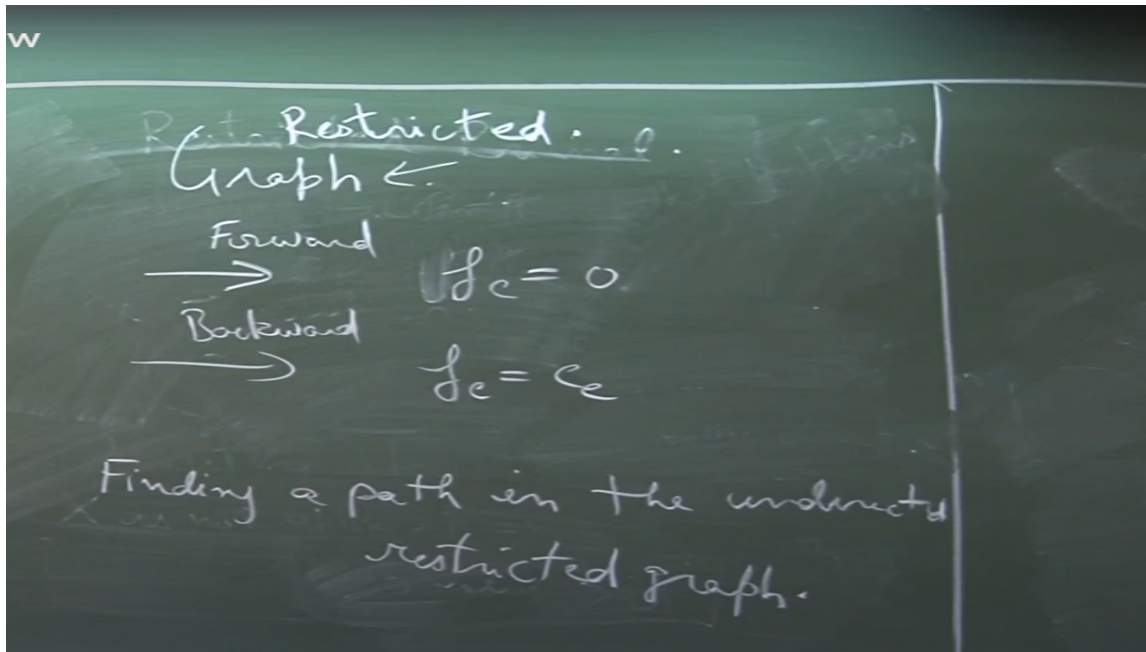 w
Restricted.
Graph ←
Forward
→ fe = 0
Backward
→ fe = ce
Finding a path in the undirectd
restricted graph.